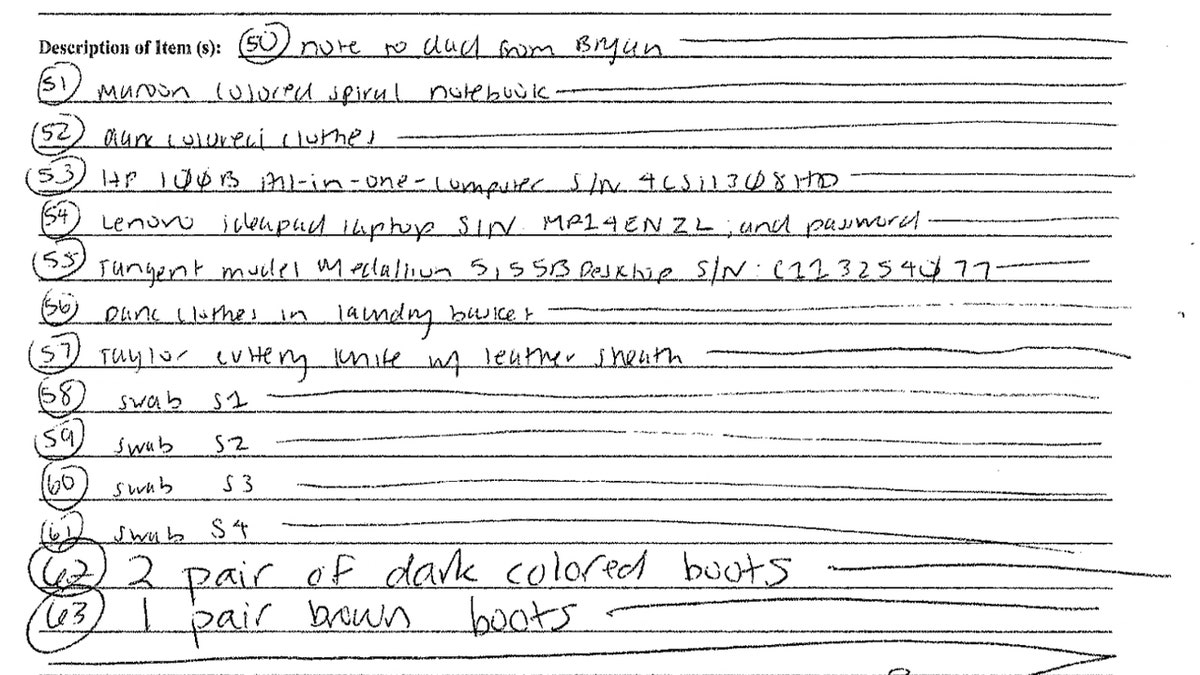 Description of Item (s): 50 note to dad from Bryan
51 maroon colored spiral notebook
52 dark colored clothes
53 HP 100B All-in-one-computer S/N 4CS11308HD
54 Lenovo ideapad laptop S/N MP14ENZL ; and password
55 Tangent model Medallion 5,155B Desktop S/N: C113254077
56 Dark clothes in laundry basket
57 Taylor cutlery knife w/ leather sheath
58 swab S1
59 swab S2
60 swab S3
61 swab S4
62 2 pair of dark colored boots
63 1 pair brown boots